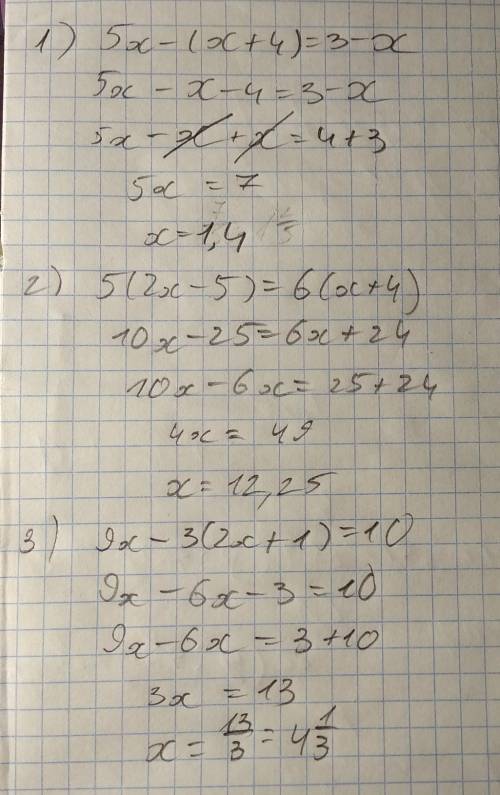 1) 5x-(x+4)=3-x
5x-x-4=3-x
5x-x+x=4+3
5x=7
x=1,4
2) 5(2x-5)=6(x+4)
10x-25=6x+24
10x-6x=25+24
4x=49
x=12,25
3) 9x-3(2x+1)=10
9x-6x-3=10
9x-6x=3+10
3x=13
x=13/3=4 1/3